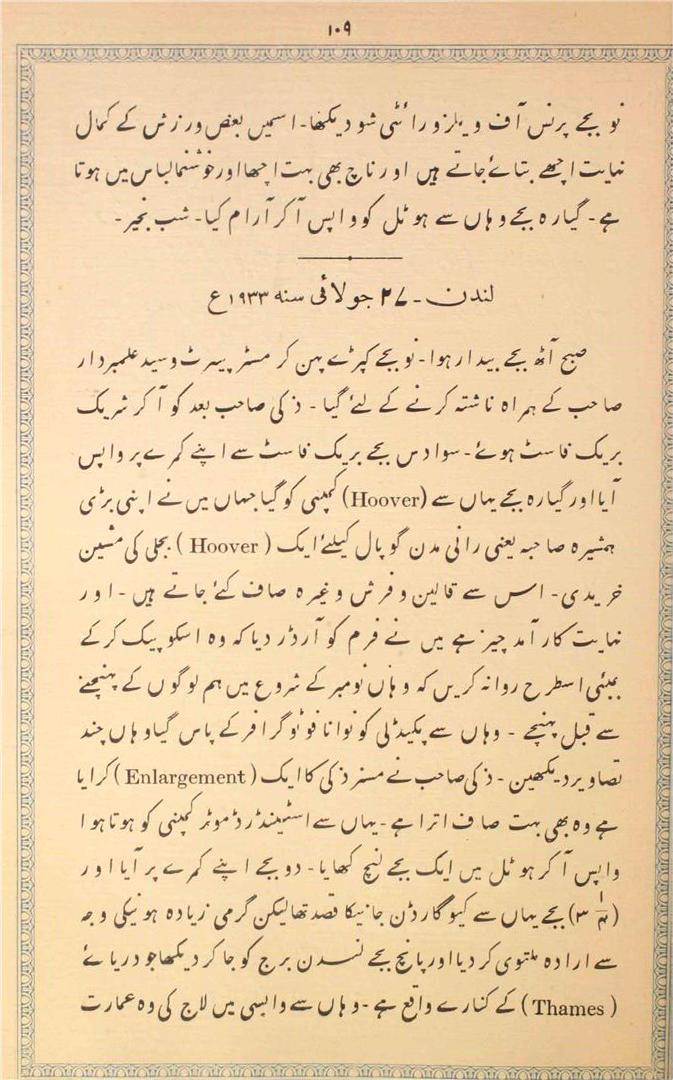 ۱۰۹
نو بجے پرنس آف ویلز ورائٹی شو دیکھا۔ اسمیں بعض ورزش کے کمال
نہایت اچھے بتائے جاتے ہیں اور ناچ بھی بہت اچھا اور خوشنما لباس میں ہوتا
ہے۔ گیارہ بجے وہاں سے ہوٹل کو واپس آکر آرام کیا۔ شب بخیر۔
لندن۔ ۲۷ جولائی سنہ ۱۹۳۳ع
صبح آٹھ بجے بیدار ہوا۔ نو بجے کپڑے پہن کر مسٹر پیرٹ وسید علمبردار
صاحب کے ہمراہ ناشتہ کرنے کے لئے گیا۔ ذکی صاحب بعد کو آکر شریک
بریک فاسٹ ہوئے۔ سوا دس بجے بریک فاسٹ سے اپنے کمرے پر واپس
آیا اور گیارہ بجے یہاں سے (Hoover) کمپنی کو گیا جہاں میں نے اپنی بڑی
ہمشیرہ صاحبہ یعنی رانی مدن گوپال کیلئے ایک (Hoover) بجلی کی مشین
خریدی۔ اس سے قالین و فرش وغیرہ صاف کئے جاتے ہیں۔ اور
نہایت کارآمد چیز ہے میں نے فرم کو آرڈر دیا کہ وہ اسکو پیک کرکے
بمبئی اسطرح روانہ کریں کہ وہاں نومبر کے شروع میں ہم لوگوں کے پہنچنے
سے قبل پہنچے۔ وہاں سے پکیڈلی کو نوانا فوٹوگرافر کے پاس گیا وہاں چند
تصاویر دیکھین۔ ذکی صاحب نے مسز ذکی کا ایک (Enlargement) کرایا
ہے وہ بھی بہت صاف اترا ہے۔ یہاں سے اسٹینڈرڈ موٹر کمپنی کو ہوتا ہوا
واپس آکر ہوٹل میں ایک بجے لنچ کھایا۔ دو بجے اپنے کمرے پر آیا اور
(۳ ۱/۴) بجے یہاں سے کیو گارڈن جانیکا قصد تھا لیکن گرمی زیادہ ہونیکی وجہ
سے ارادہ ملتوی کردیا اور پانچ بجے لندن برج کو جاکر دیکھا جو دریائے
(Thames) کے کنارے واقع ہے۔ وہاں سے واپسی میں لاج کی وہ عمارت